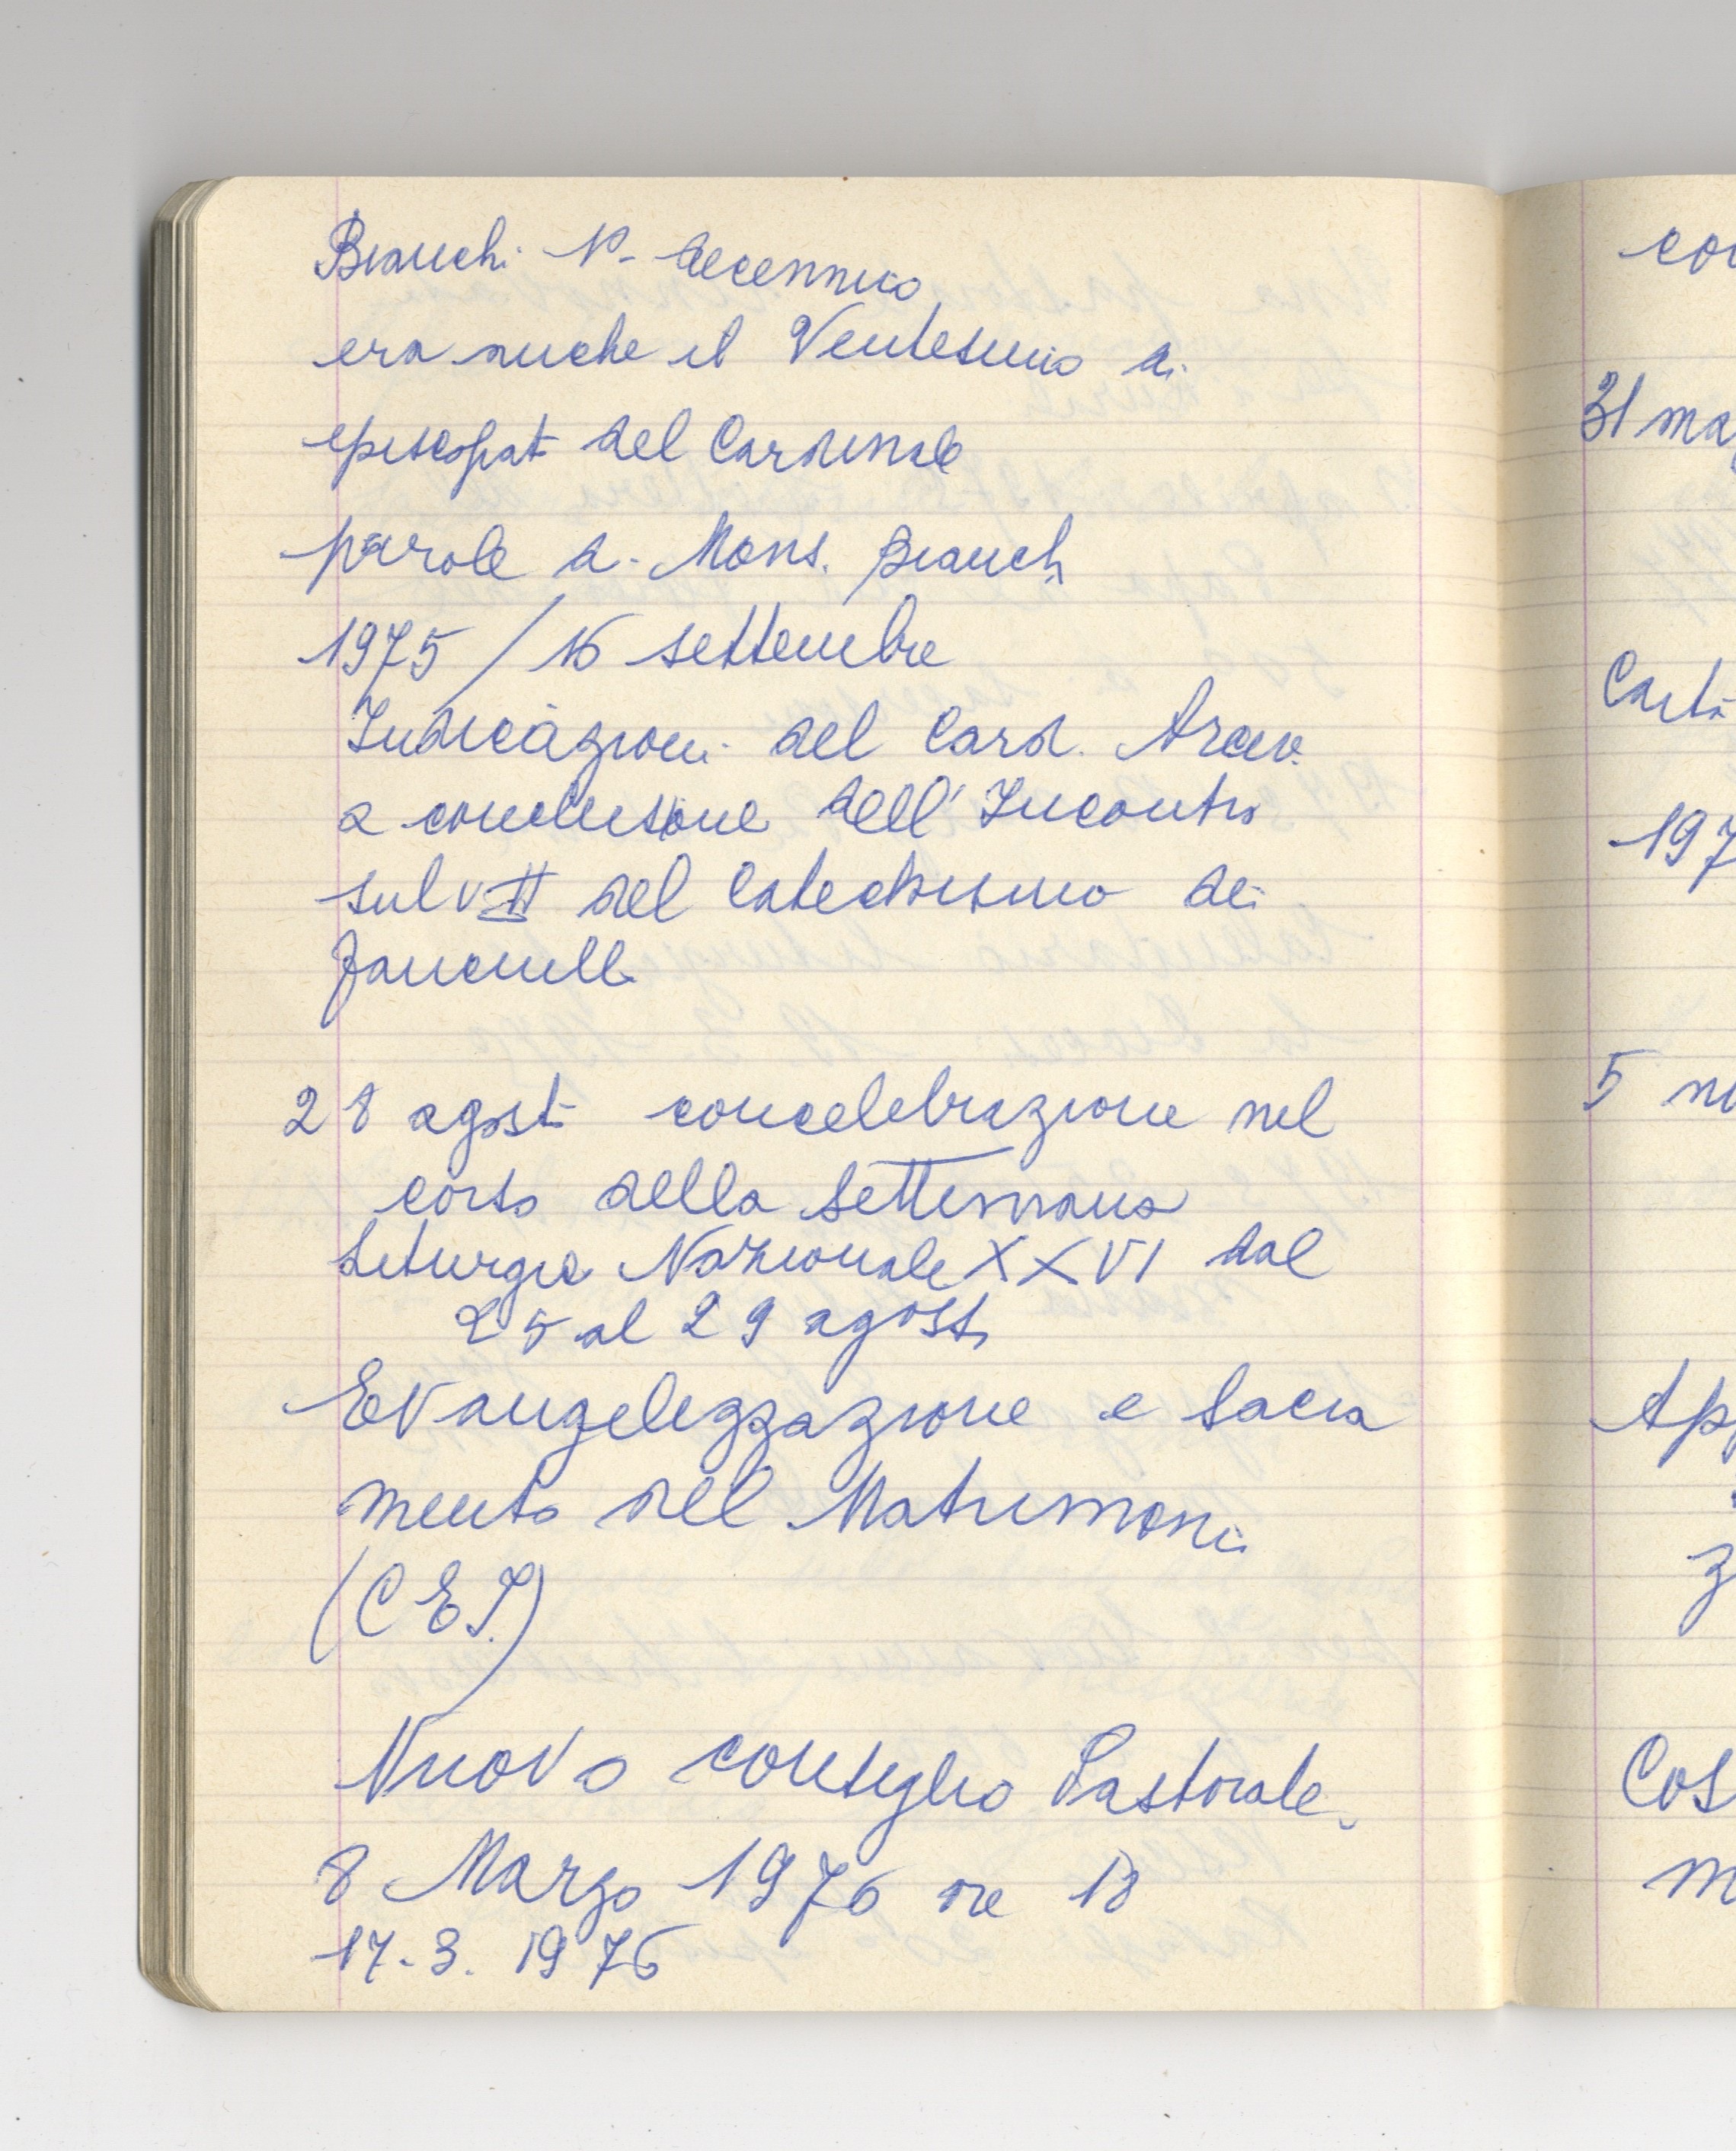 Bianchi N- decennio
era anche il Ventesimo di
episcopato del Cardinale
parole di Mons. Bianchi
1975 / 16 settembre
Indicazioni del Card. Arciv.
a conclusione dell'Incontro
sul v II del Catechismo dei
fanciulli
28 agosto concelebrazione nel
corso della Settimana
Liturgica Nazionale XXVI dal
25 al 29 agosto
Evangelizzazione e Sacra
mento del Matrimonio
(C E I.)
Nuovo consiglio Pastorale.
8 Marzo 1976 ore 18
17.3.1976
31 ma
197
5 no
App
z
Cos
m